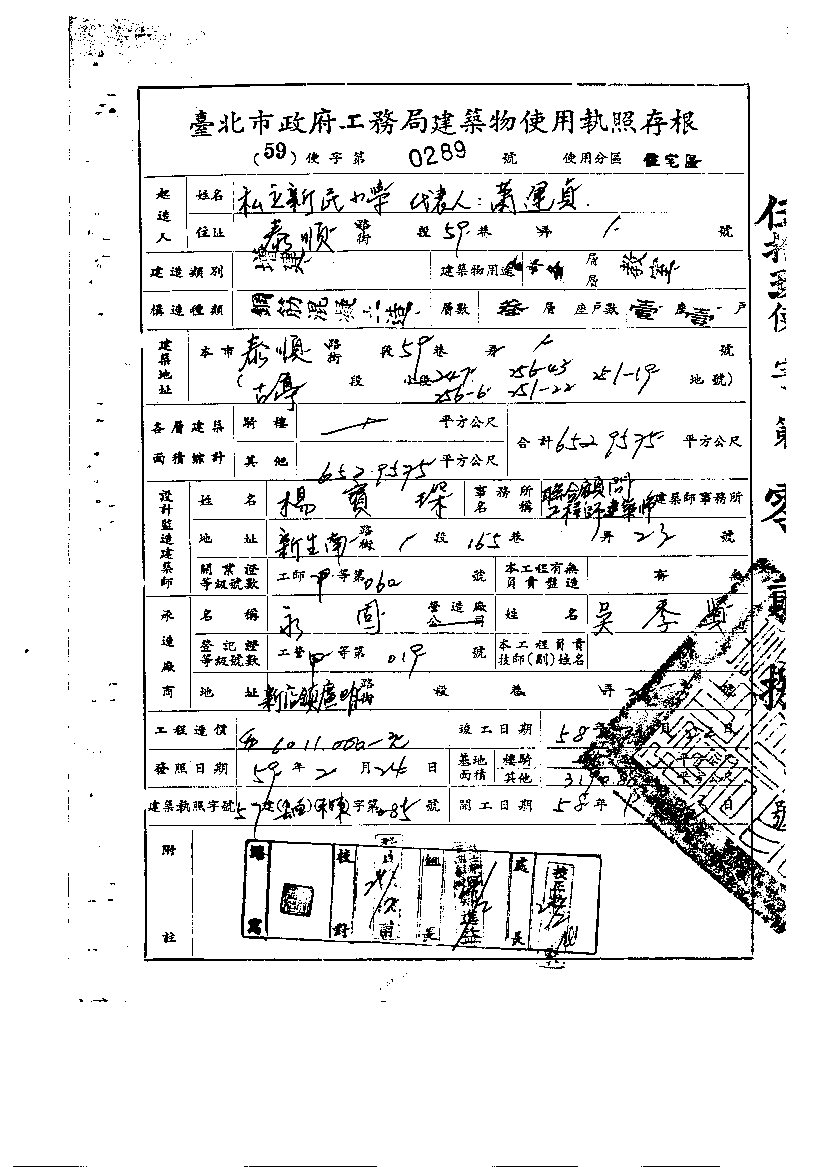 臺北市政府工務局建築物使用執照存根
(59) 使字第 0289 號 使用分區 住宅區
起造人 姓名 私立新民小學 代表人:蕭運貞
住址 泰順 路街 段 59 巷 弄 1 號
建造類別 增建 建築物用途 層 層 教室
構造種類 鋼筋混凝土造 層數 叁 層 座戶數 壹 座 壹 戶
建築地址 本市 泰順 路街 段 59 巷 弄 1 號
(古亭 段 小段 247 256-43 251-19 地號)
256-6 251-22
各層建築面積總計 騎樓 平方公尺 合計 652.9575 平方公尺
其他 652.9575 平方公尺
設計監造建築師 姓名 楊寶琛 事務所名稱 聯合顧問工程師建築師 建築師事務所
地址 新生南 路街 1 段 165 巷 弄 23 號
開業證等級號數 工師 甲 等第 060 號 本工程有無負責監造 有 無
承造廠商 名稱 永固 營造廠公司 姓名 吳季貞
登記證等級號數 工營 甲 等第 019 號 本工程負責技師(副)姓名
地址 新店鎮廣明 路街 段 巷 弄 號
工程造價 6011.000元 竣工日期 58 年 月 日
發照日期 59 年 2 月 24 日 基地面積 騎樓 平方公尺
其他 平方公尺
建築執照字號 57 建 字第 085 號 開工日期 58 年 日
附註
繕寫 校對 組長 處長
使字第零
號